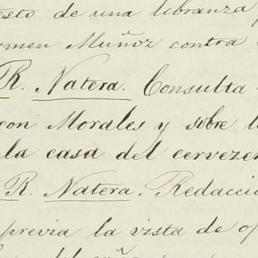 esto de una libranza
rmen Muñoz contra
R. Natera. Consulta
con Morales y sobre l
la casa del cerveze
R. Natera. Redacció
previa la vista de o